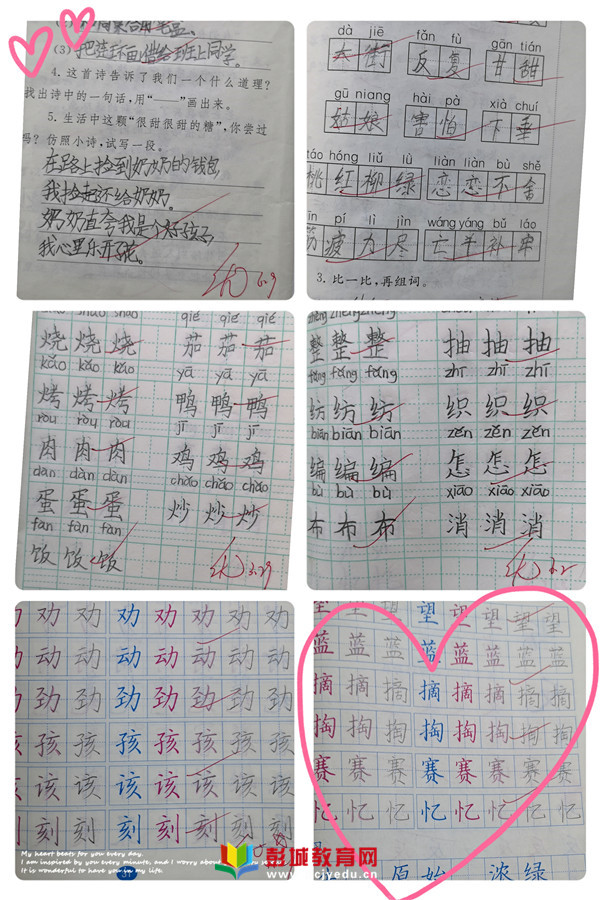 (3) 把连环画借给班上同学。
4. 这首诗告诉了我们一个什么道理?
找出诗中的一句话,用“____”画出来。
5. 生活中这颗“很甜很甜的糖”,你尝过
吗?仿照小诗,试写一段。
在路上捡到奶奶的钱包
我捡起还给奶奶。
奶奶直夸我是个好孩子
我心里乐开了花。
优 6.9
dà jiē fǎn fù gān tián
大街 反复 甘甜
gū niang hài pà xià chuí
姑娘 害怕 下垂
táo hóng liǔ lǜ liàn liàn bù shě
桃红柳绿 恋恋不舍
jīn pí lì jìn wáng yáng bǔ láo
筋疲力尽 亡羊补牢
3. 比一比,再组词。
shāo shāo qié qié qié
烧烧烧 茄茄茄
kǎo kǎo kǎo yā yā yā
烤烤烤 鸭鸭鸭
ròu ròu ròu jī jī jī
肉肉肉 鸡鸡鸡
dàn dàn dàn chǎo chǎo chǎo
蛋蛋蛋 炒炒炒
fàn fàn fàn
饭饭饭
优 3.29
zhěng zhěng zhěng
整整整 抽抽抽
fǎng fǎng fǎng zhī zhī zhī
纺纺纺 织织织
biān biān biān zěn zěn zěn
编编编 怎怎怎
bù bù bù xiāo xiāo xiāo
布布布 消消消
优
劝劝劝劝劝劝劝
动动动动动动动
劲劲劲劲劲劲劲
孩孩孩孩孩孩孩
该该该该该该该
刻刻刻刻刻刻刻
My heart beats for you every day.
I am inspired by every minute, and I worry about
It is wonderful to have you in my life.
31
望望望望望望望望
蓝蓝蓝蓝蓝蓝蓝蓝
摘摘摘摘摘摘摘摘
掏掏掏掏掏掏掏掏
赛赛赛赛赛赛赛赛
忆忆忆忆忆忆忆忆
原始 浓绿
彭城教育网
www.pcjyedu.cn